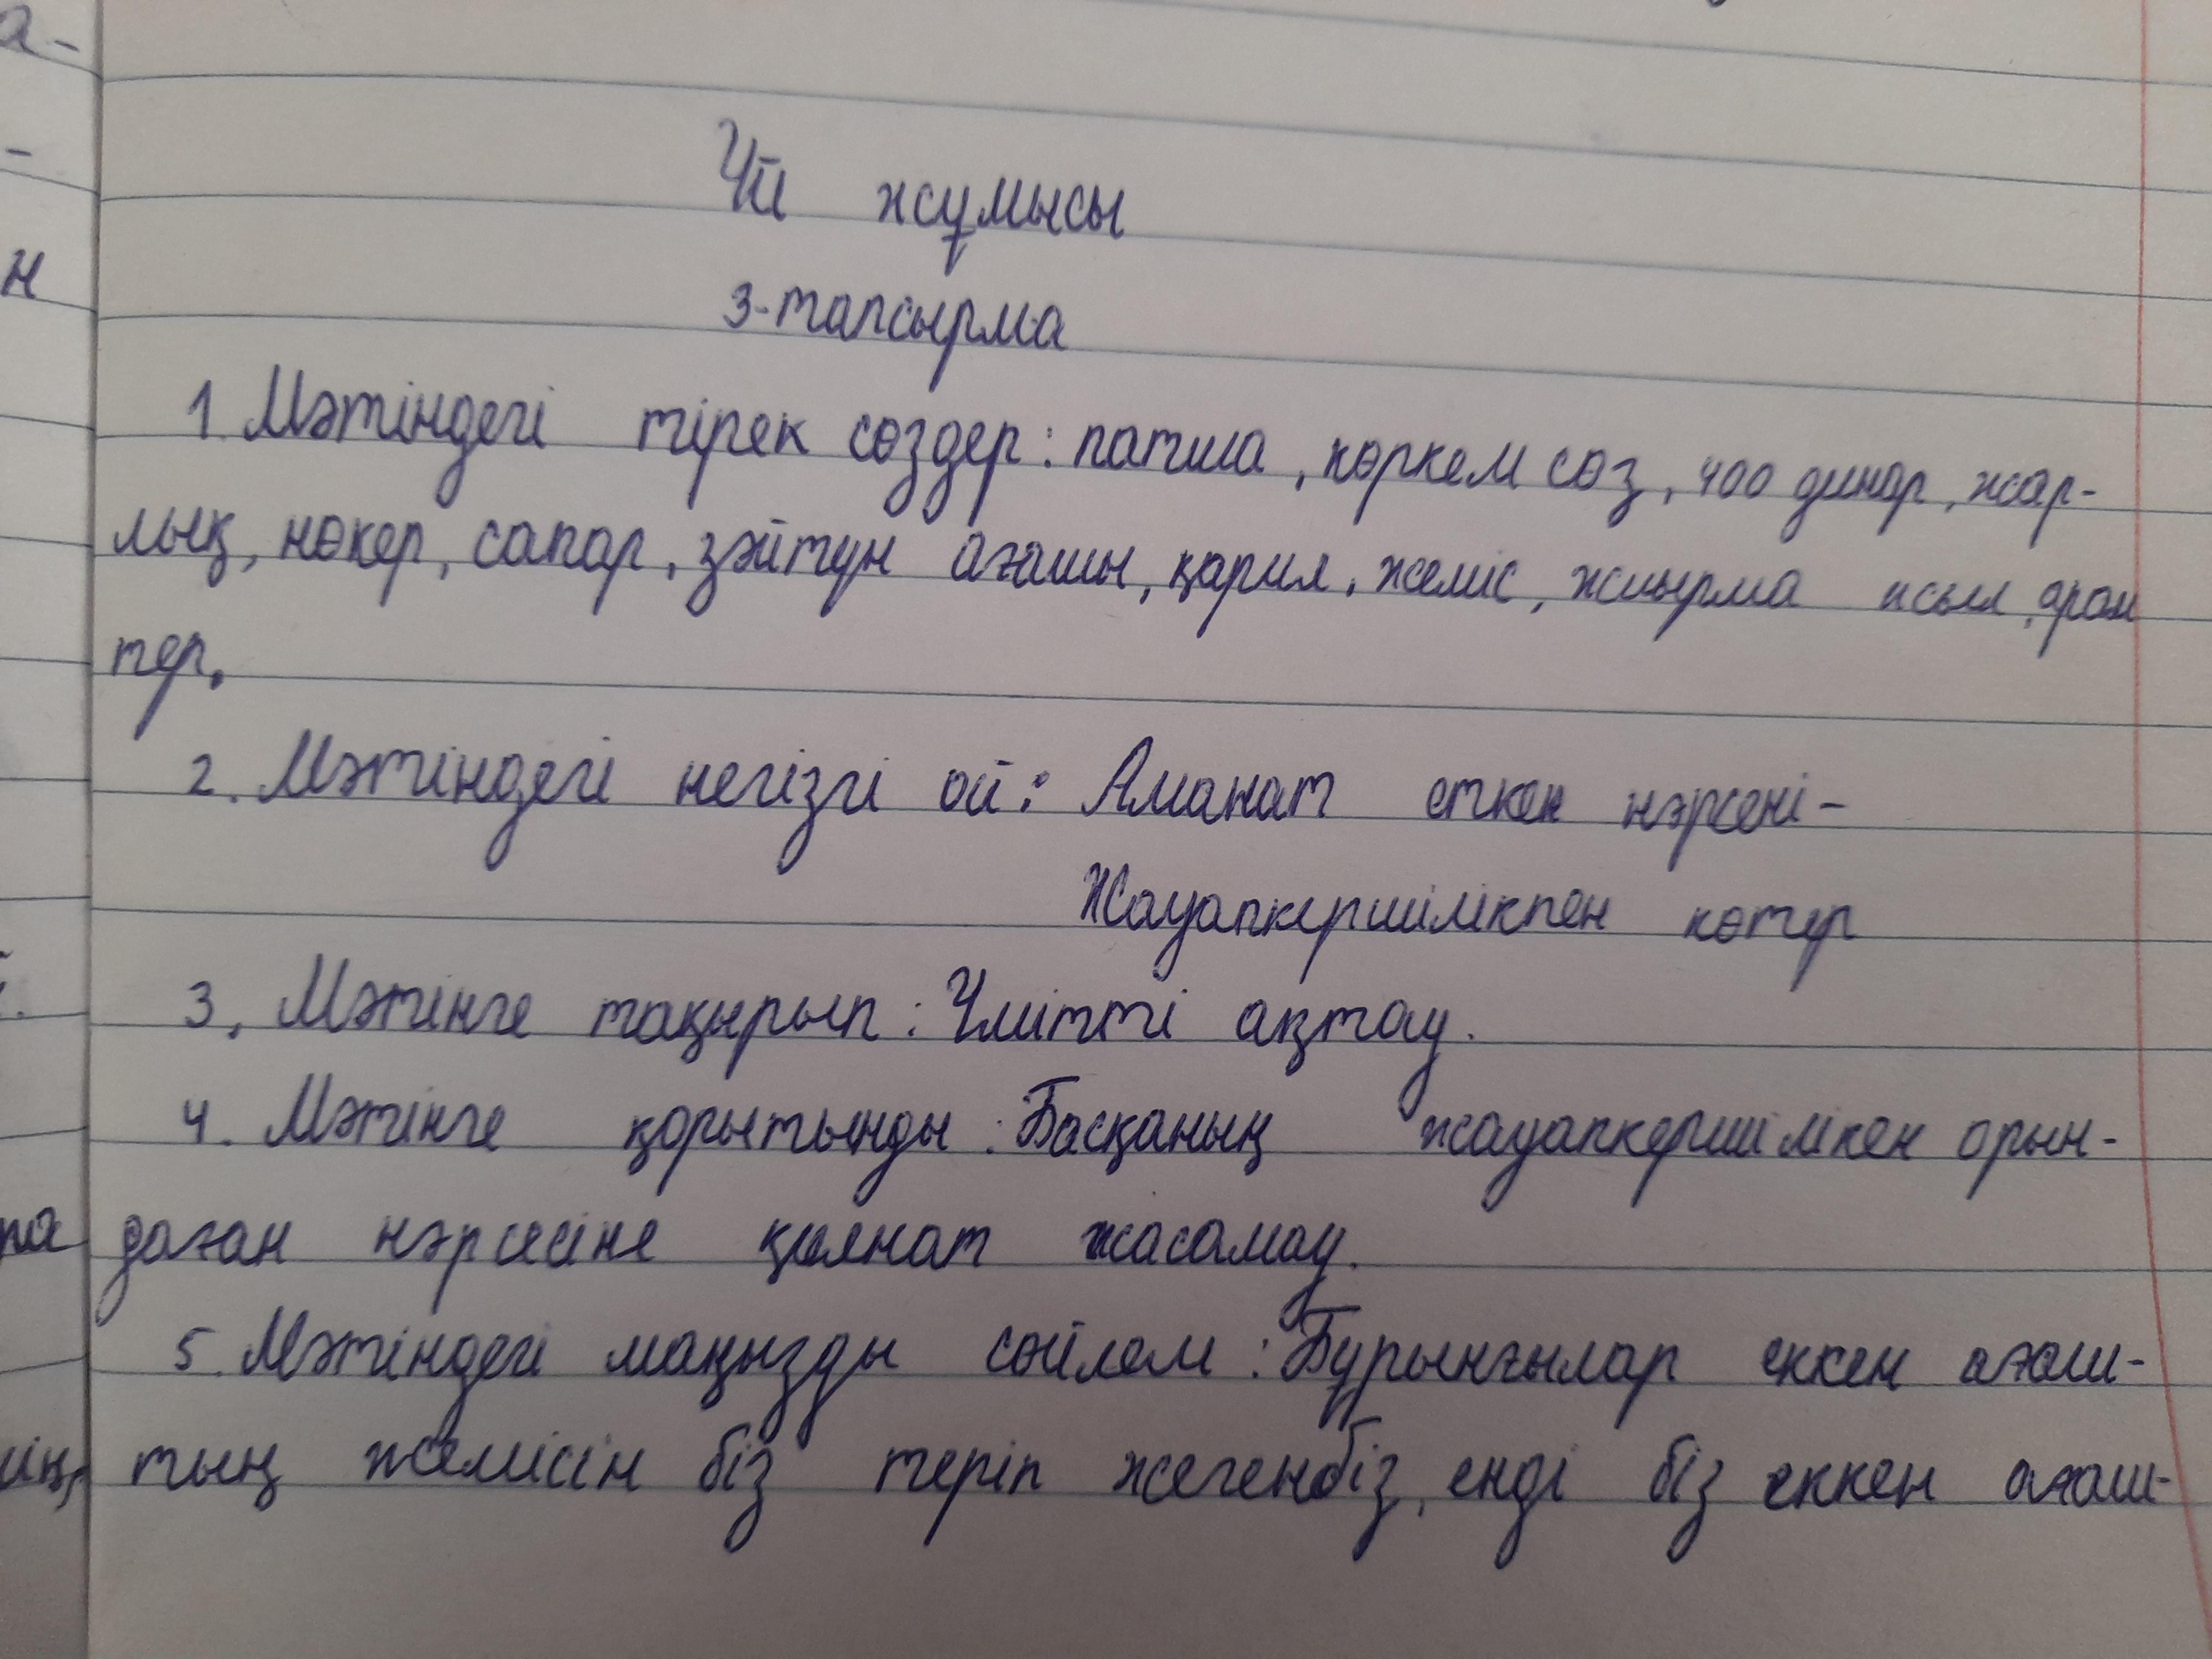 Үй жұмысы
3-тапсырма
1. Мәтіндегі тірек сөздер: патша, көркем сөз, 400 динар, жар-
лық, нөкер, сапар, зәйтүн ағашы, қария, жеміс, жиырма асыл, арам
тер.
2. Мәтіндегі негізгі ой: Аманат еткен нәрсені -
Жауапкершілікпен көтер
3. Мәтінге тақырып: Үмітті ақтау.
4. Мәтінге қорытынды: Басқаның жауапкершілікен орын-
даған нәрсесіне қиянат жасамау.
5. Мәтіндегі маңызды сөйлем: Бұрынғылар еккен ағаш-
тың жемісін біз теріп жегенбіз, енді біз еккен ағаш-